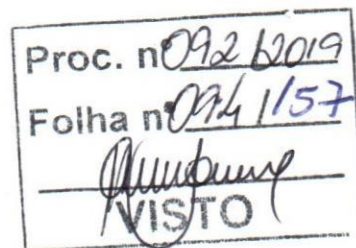 Proc. nº 092/2019
Folha nº 094 1/57
VISTO